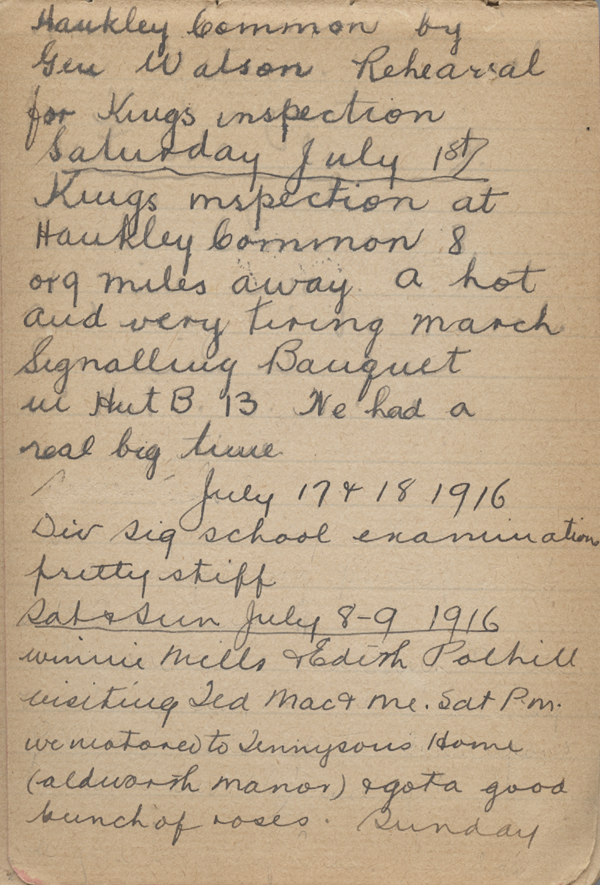 Hankley Common by
Gen Watson Rehearsal
for Kings inspection
Saturday July 1st/
Kings inspection at
Hankley Common 8
or 9 miles away. A hot
and very tiring march
Signalling Banquet
in Hut B 13 We had a
real big time
July 17 & 18 1916
Div Sig school examination
pretty stiff
Sat & Sun July 8-9 1916
Winnie Mills & Edith Polhill
visiting Ted Mac & Me. Sat P.m.
we motored to Tennysons Home
(aldworth Manor) & got a good
bunch of roses. Sunday